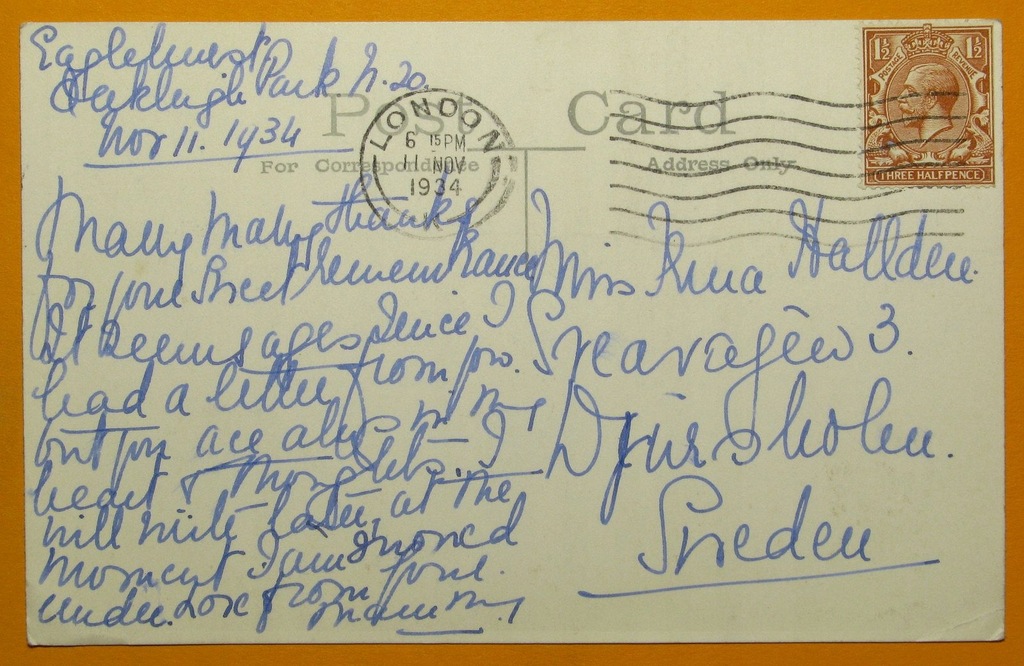 Eaglehurst
Oakleigh Park N. 20.
Nov 11. 1934
Post Card
For Correspondence
Address Only
LONDON
6 15 PM
11 NOV
1934
K
1½ 1½
POSTAGE REVENUE
THREE HALFPENCE
Many Many thanks
for your sweet remembrance
It seems ages since I
had a letter from you.
but you are always in my
heart & thoughts. I
will write later, at the
moment I am snowed
under. Love from your
Mammy
Miss Anna Hallden.
Sveavägen 3.
Djursholm.
Sweden